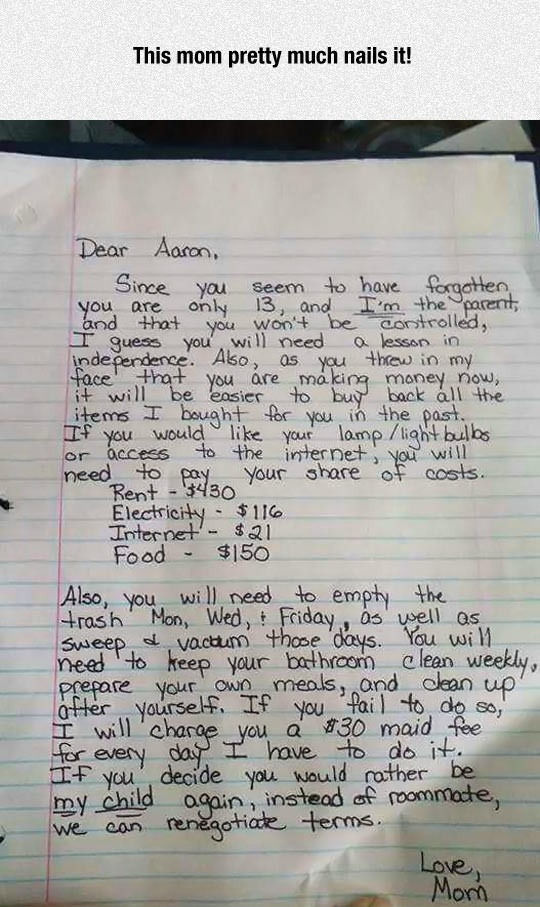 This mom pretty much nails it!
Dear Aaron,
Since you seem to have forgotten
you are only 13, and I'm the parent,
and that you won't be controlled,
I guess you will need a lesson in
independence. Also, as you threw in my
face that you are making money now,
it will be easier to buy back all the
items I bought for you in the past.
If you would like your lamp/lightbulbs
or access to the internet, you will
need to pay your share of costs.
Rent - $430
Electricity - $116
Internet - $21
Food - $150
Also, you will need to empty the
trash Mon, Wed, & Friday, as well as
sweep & vacuum those days. You will
need to keep your bathroom clean weekly,
prepare your own meals, and clean up
after yourself. If you fail to do so,
I will charge you a $30 maid fee
for every day I have to do it.
If you decide you would rather be
my child again, instead of roommate,
we can renegotiate terms.
Love,
Mom